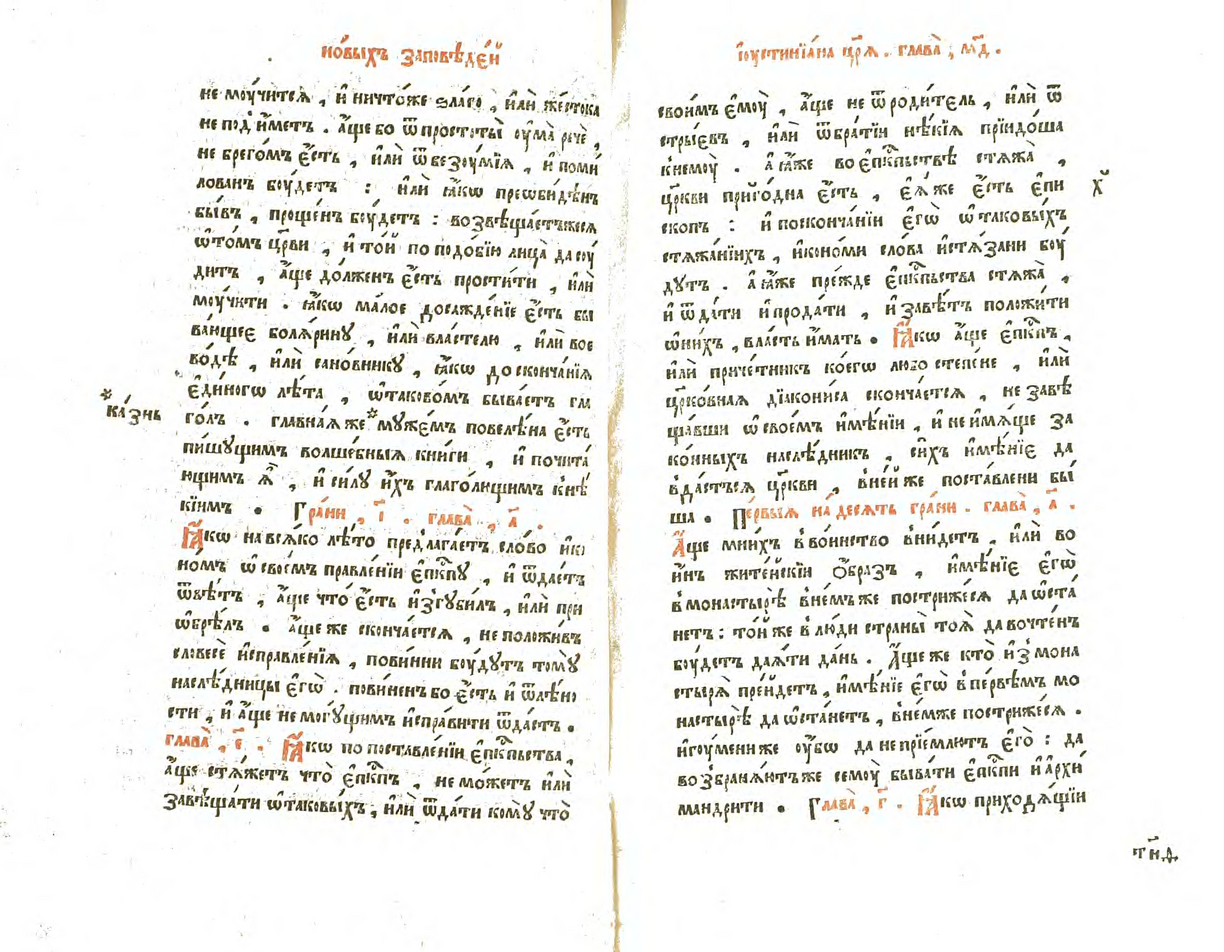 но́выхъ заповѣ́де́й
не моу́читсѧ , и҆ ничто́же ѕла́го , и҆лѝ же́стока
не под̾и́метъ . а҆́ще бо ѿ простоты̀ оу҆ма̀ речѐ ,
не брего́мъ є҆́сть , и҆лѝ ѿ безоу́мїѧ , и҆ поми́
лованъ боу́детъ : и҆лѝ ꙗ҆́кѡ преѡби́дѣнъ
бы́въ , проще́нъ боу́детъ : возвѣща́етъжесѧ
ѡ҆ то́мъ цр҃ви , и҆ то́й по подо́бїю лица̀ да соу́
дитъ , а҆́ще до́лженъ є҆́сть прости́ти , и҆лѝ
моу́чити . ꙗ҆́кѡ ма́лое досажде́нїе є҆́сть бы
ва́ющеє болѧ́рину , и҆лѝ вла́стелю , и҆лѝ вое
во́дѣ , и҆лѝ сано́внику , ꙗ҆́кѡ до сконча́нїѧ
є҆ди́ногѡ лѣ́та , ѡ҆ тако́во́мъ быва́етъ гла
го́лъ . гла́внаѧ же * му́жє́мъ повелѣ́на є҆́сть
*
ка́знь
пи́шущимъ волше́бныѧ кни́ги , и҆ почита́
ющимъ ѧ҆̀ , и҆ си́лу и҆́хъ глаго́лющимъ к̾нѣ́
кїимъ . Гра́ни , і҃ . глава̀ , а҃ .
Ꙗ҆́кѡ на всѧ́ко лѣ́то предлага́етъ сло́во и҆ко
но́мъ ѡ҆ свое́мъ правле́нїи є҆пⷭ҇кпу , и҆ ѿда́етъ
ѿвѣ́тъ , а҆́ще что̀ є҆́сть и҆згуби́лъ , и҆лѝ при
ѡбрѣ́лъ . а҆́ще же сконча́етсѧ , не положи́въ
словесѐ и҆справле́нїѧ , пови́нни боу́дутъ тому̀
наслѣ́дницы є҆гѡ̀ . пови́ненъ бо є҆́сть и҆ ѿ лѣ́но
сти , и҆ а҆́ще не могу́щимъ и҆спра́вити ѿда́стъ .
глава̀ , є҃ . Ꙗ҆́кѡ по поставле́нїи є҆пⷭ҇кпьства ,
а҆́ще стѧ́жетъ что̀ є҆пⷭ҇кпъ , не мо́жетъ и҆лѝ
завѣща́ти ѡ҆ тако́вы́хъ , и҆лѝ ѿда́ти кому̀ что̀
і҆оустинїа́на цр҃ѧ̀ . глава̀ , м҃д .
свои́мъ є҆моу̀ , а҆́ще не ѿ роди́тель , и҆лѝ ѿ
стры́євъ , и҆лѝ ѿ бра́тїи нѣ́кїѧ прїидо́ша
к̾ немоу̀ . а҆ ꙗ҆̀же во є҆пⷭ҇кпьствѣ̀ стѧжа̀ ,
цр҃кви приго́дна є҆́сть , є҆ѧ́же є҆́сть є҆пи
х҃
скопъ : и҆ по сконча́нїи є҆гѡ̀ ѡ҆ тако́вы́хъ
стѧжа́нїихъ , и҆коно́ми сло́ва и҆стѧ́зани боу́
дутъ . а҆ ꙗ҆̀же пре́жде є҆пⷭ҇кпьства стѧжа̀ ,
и҆ ѿда́ти и҆ прода́ти , и҆ завѣ́тъ положи́ти
ѡ҆ ни́хъ , вла́сть и҆́мать . Ꙗ҆́кѡ а҆́ще є҆пⷭ҇кпъ ,
и҆лѝ приче́тникъ коегѡ̀ любо сте́пене , и҆лѝ
цр҃ко́внаѧ дїа́кониса сконча́етсѧ , не завѣ
ща́вши ѡ҆ свое́мъ и҆мѣ́нїи , и҆ не и҆мѧ́ще за
ко́нныхъ наслѣ́дникъ , си́хъ и҆мѣ́нїє да
в̾да́стьсѧ цр҃кви , в̾ не́йже поста́влени бы́
ша . Пе́рвыѧ на́ десѧть гра́ни . глава̀ , а҃ .
А҆́ще мни́хъ в̾ во́инство вни́детъ , и҆лѝ во
и҆́нъ жите́йскїи о҆́бразъ , и҆мѣ́нїє є҆гѡ̀
в̾ монастырѣ̀ в̾ не́мъже постри́жесѧ да ѡ҆ста́
нетъ : то́йже в̾ лю́ди страны̀ тоѧ̀ да вочте́нъ
боу́детъ даѧ́ти да́нь . А҆́ще же кто̀ и҆з̾ мона
стырѧ̀ пре́йдетъ , и҆мѣ́нїе є҆гѡ̀ в̾ пе́рвѣмъ мо
настырѣ̀ да ѡ҆ста́нетъ , в̾ не́мже постри́жесѧ .
и҆гоу́мени же оу҆́бѡ да не прїе́млютъ є҆го̀ : да
возбранѧ́ютъже семоу̀ быва́ти є҆пⷭ҇кпи и҆ а҆рхи
мандри́ти . Глава̀ , г҃ . Ꙗ҆́кѡ приходѧ́щїи
т҃н҃д